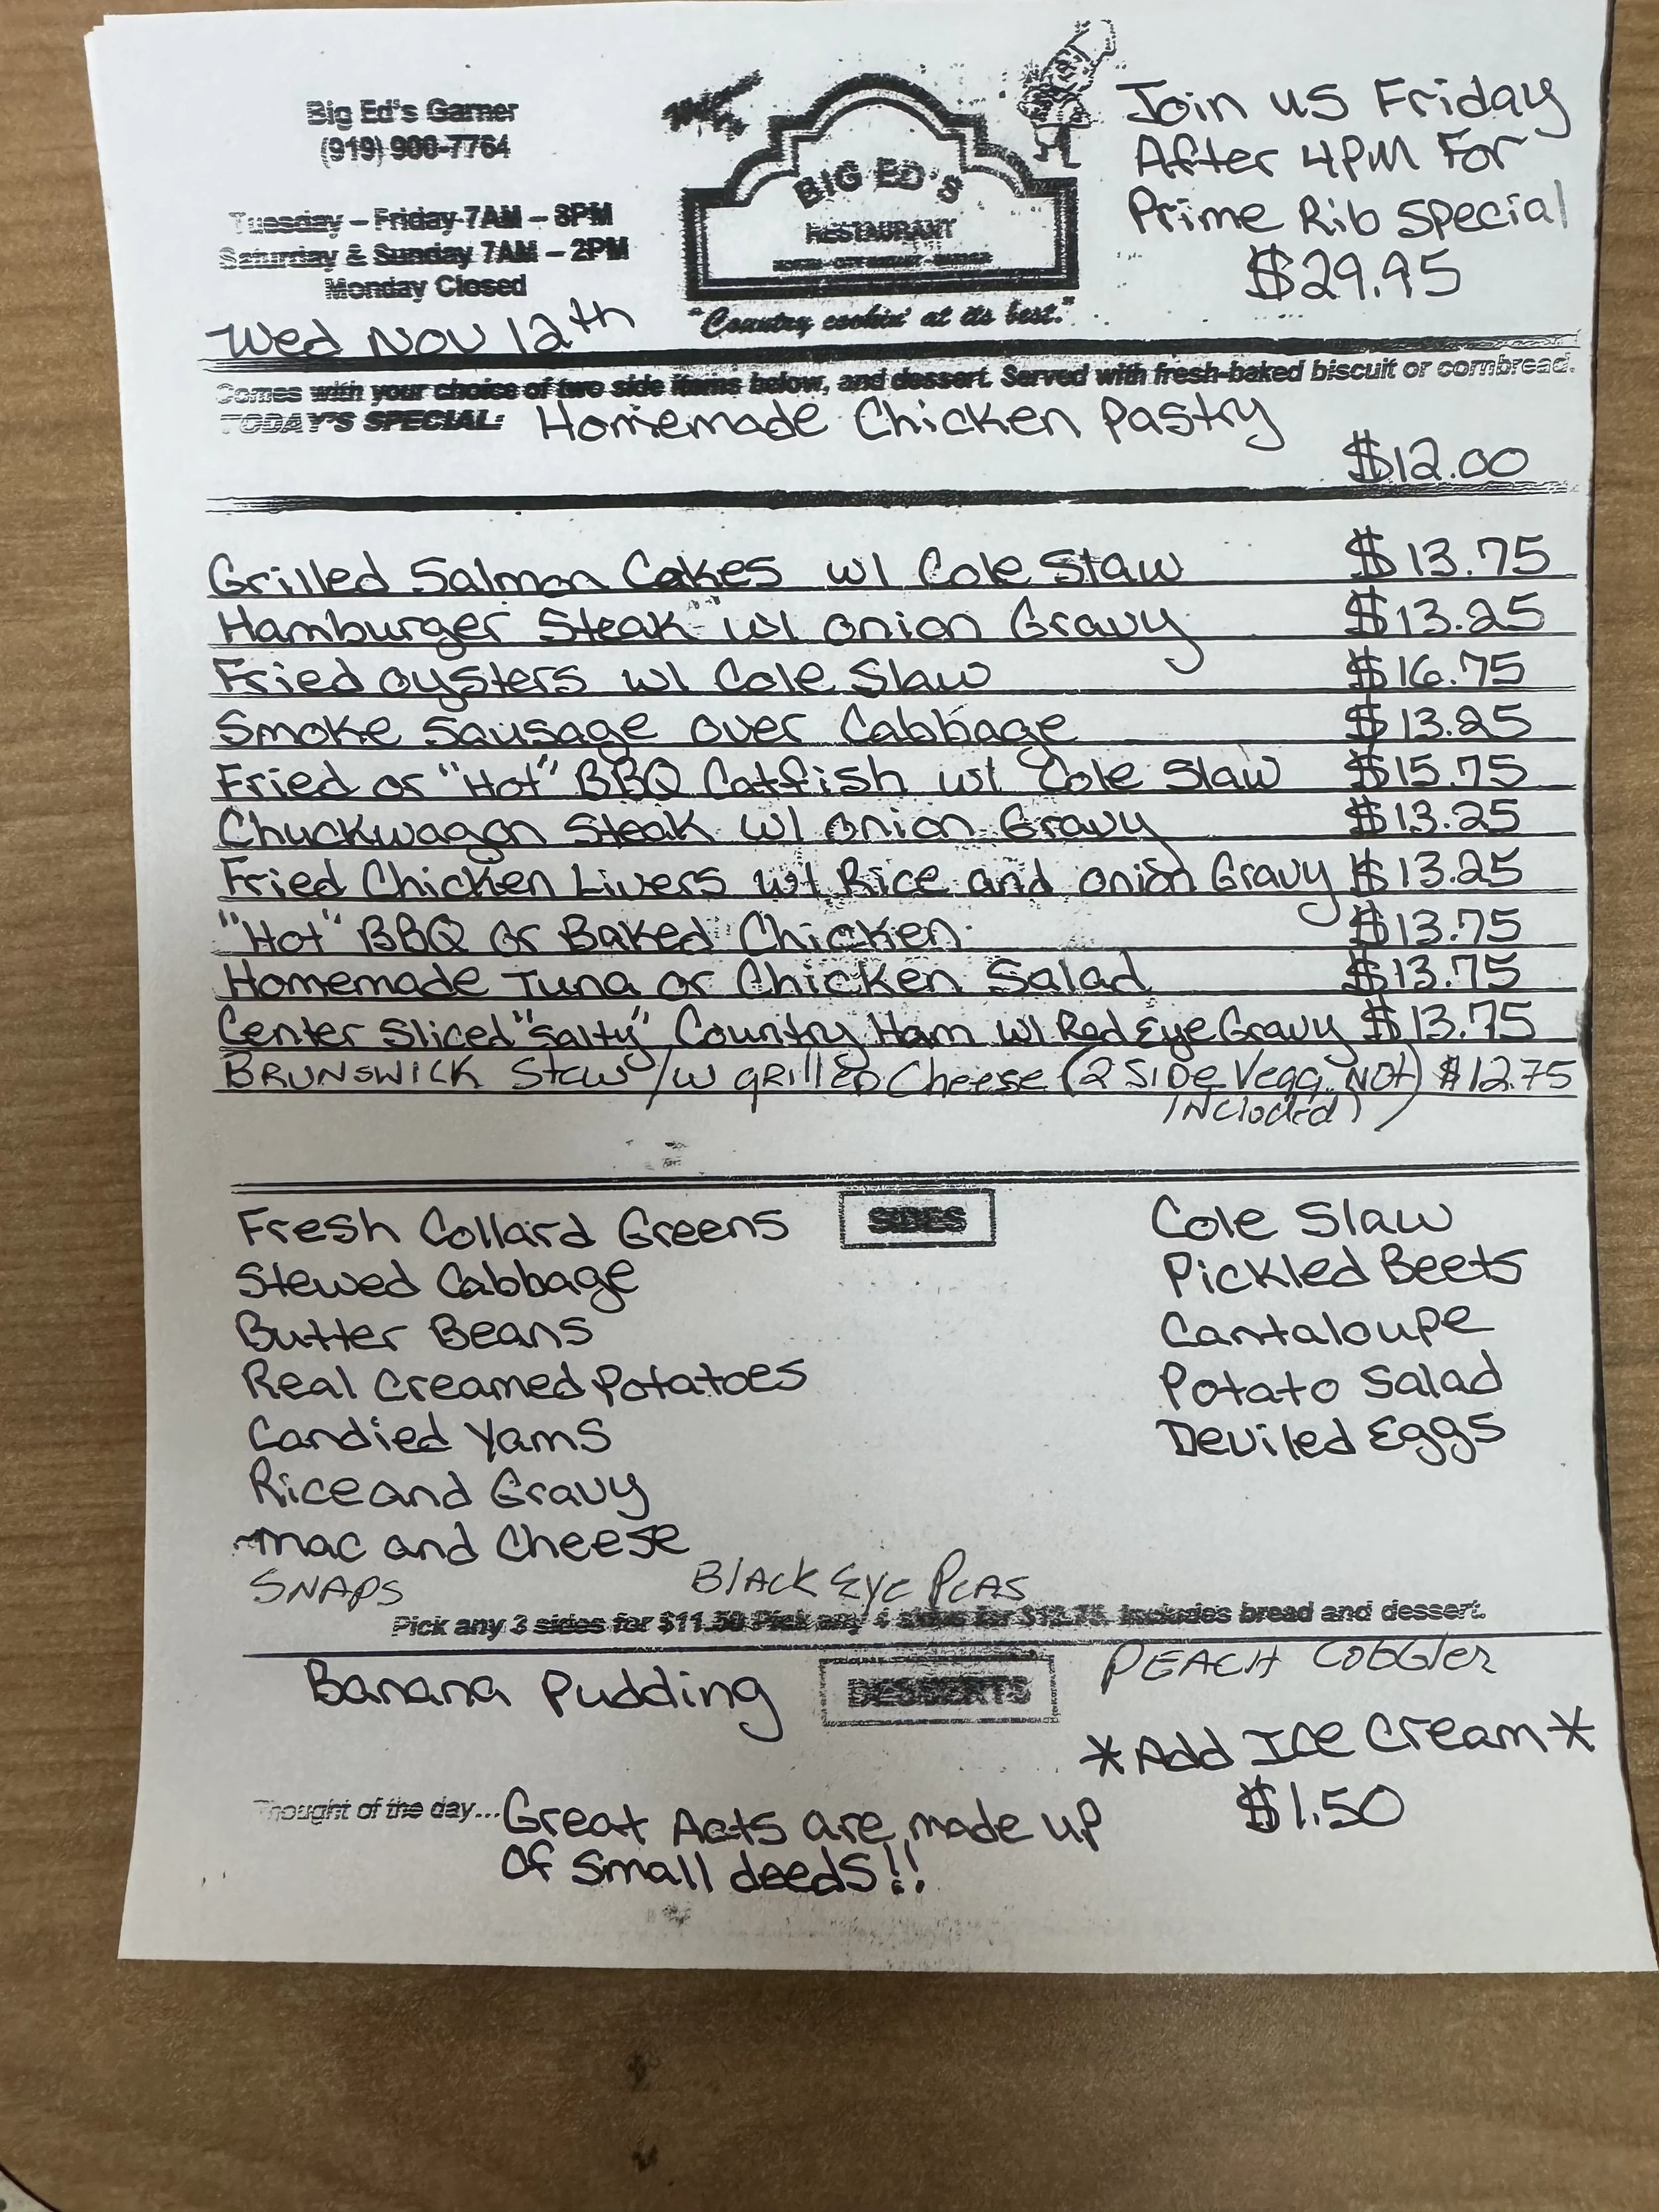 Big Ed's Garner
(919) 900-7764
Tuesday – Friday 7AM – 8PM
Saturday & Sunday 7AM – 2PM
Monday Closed
Wed Nov 12th
BIG ED'S
RESTAURANT
"Country cookin' at its best."
Join us Friday
After 4PM For
Prime Rib Special
$29.95
Comes with your choice of two side items below, and dessert. Served with fresh-baked biscuit or cornbread.
TODAY'S SPECIAL: Homemade Chicken Pastry
$12.00
Grilled Salmon Cakes w/ Cole Slaw $13.75
Hamburger Steak w/ onion Gravy $13.25
Fried oysters w/ Cole Slaw $16.75
Smoke Sausage over Cabbage $13.25
Fried or "Hot" BBQ Catfish w/ Cole Slaw $15.75
Chuckwagon Steak w/ onion Gravy $13.25
Fried Chicken Livers w/ Rice and onion Gravy $13.25
"Hot" BBQ or Baked Chicken $13.75
Homemade Tuna or Chicken Salad $13.75
Center Sliced "Salty" Country Ham w/ Red Eye Gravy $13.75
BRUNSWICK Stew /w GRILLED Cheese (2 SIDE Vegg. NOT) $12.75
INCluded)
SIDES
Fresh Collard Greens
Stewed Cabbage
Butter Beans
Real Creamed Potatoes
Candied Yams
Rice and Gravy
Mac and Cheese
SNAPS
BlACK EYE PEAS
Cole Slaw
Pickled Beets
Cantaloupe
Potato Salad
Deviled Eggs
Pick any 3 sides for $11.50 Pick any 4 sides for $12.75. Includes bread and dessert.
DESSERTS
Banana Pudding
PEACH CObbler
*Add Ice Cream*
$1.50
Thought of the day... Great Acts are made up
Of Small deeds!!